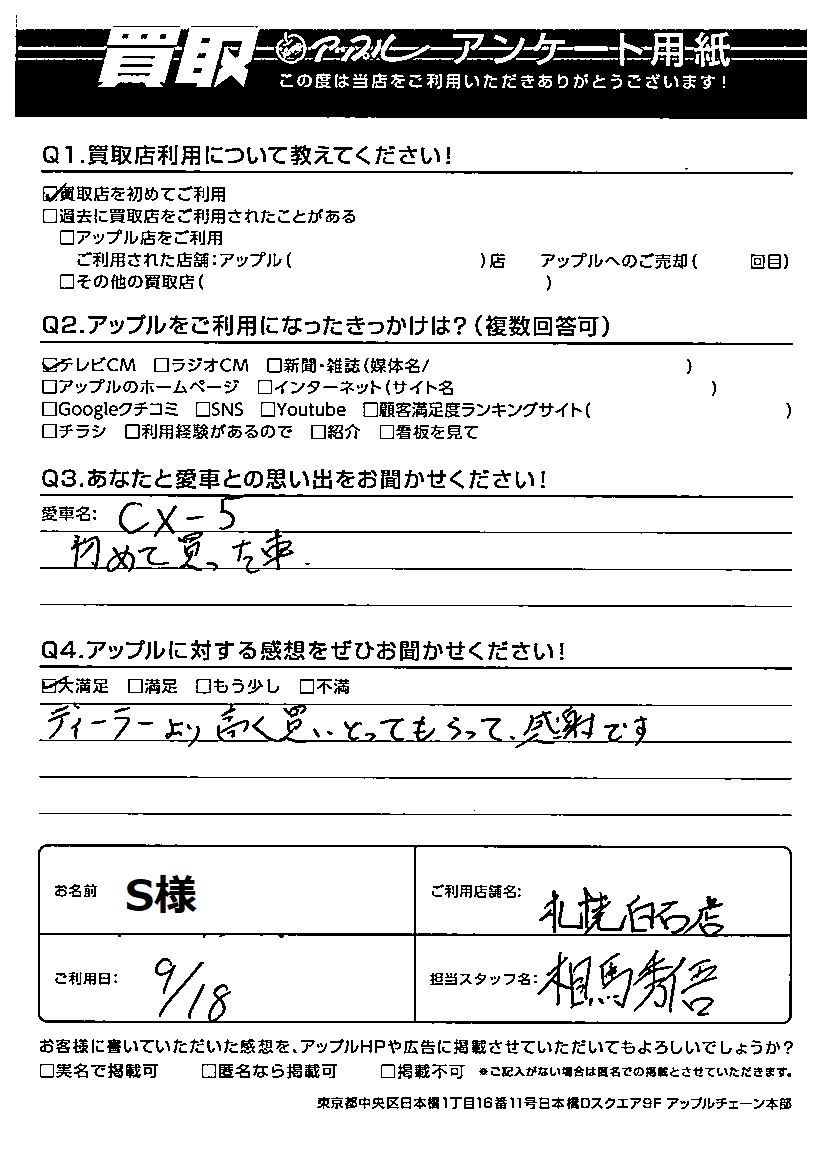 買取 アップル アンケート用紙
この度は当店をご利用いただきありがとうございます!
Q1.買取店利用について教えてください!
☑買取店を初めてご利用
□過去に買取店をご利用されたことがある
□アップル店をご利用
ご利用された店舗:アップル( )店 アップルへのご売却( 回目)
□その他の買取店( )
Q2.アップルをご利用になったきっかけは?(複数回答可)
☑テレビCM □ラジオCM □新聞・雑誌(媒体名/ )
□アップルのホームページ □インターネット(サイト名 )
□Googleクチコミ □SNS □Youtube □顧客満足度ランキングサイト( )
□チラシ □利用経験があるので □紹介 □看板を見て
Q3.あなたと愛車との思い出をお聞かせください!
愛車名: CX-5
初めて買った車.
Q4.アップルに対する感想をぜひお聞かせください!
☑大満足 □満足 □もう少し □不満
ディーラーより高く買いとってもらって、感謝です
お名前 S様
ご利用店舗名: 札幌白石店
ご利用日: 9/18
担当スタッフ名: 相馬秀悟
お客様に書いていただいた感想を、アップルHPや広告に掲載させていただいてもよろしいでしょうか?
□実名で掲載可 □匿名なら掲載可 □掲載不可 ※ご記入がない場合は匿名での掲載とさせていただきます。
東京都中央区日本橋1丁目16番11号日本橋Dスクエア9F アップルチェーン本部